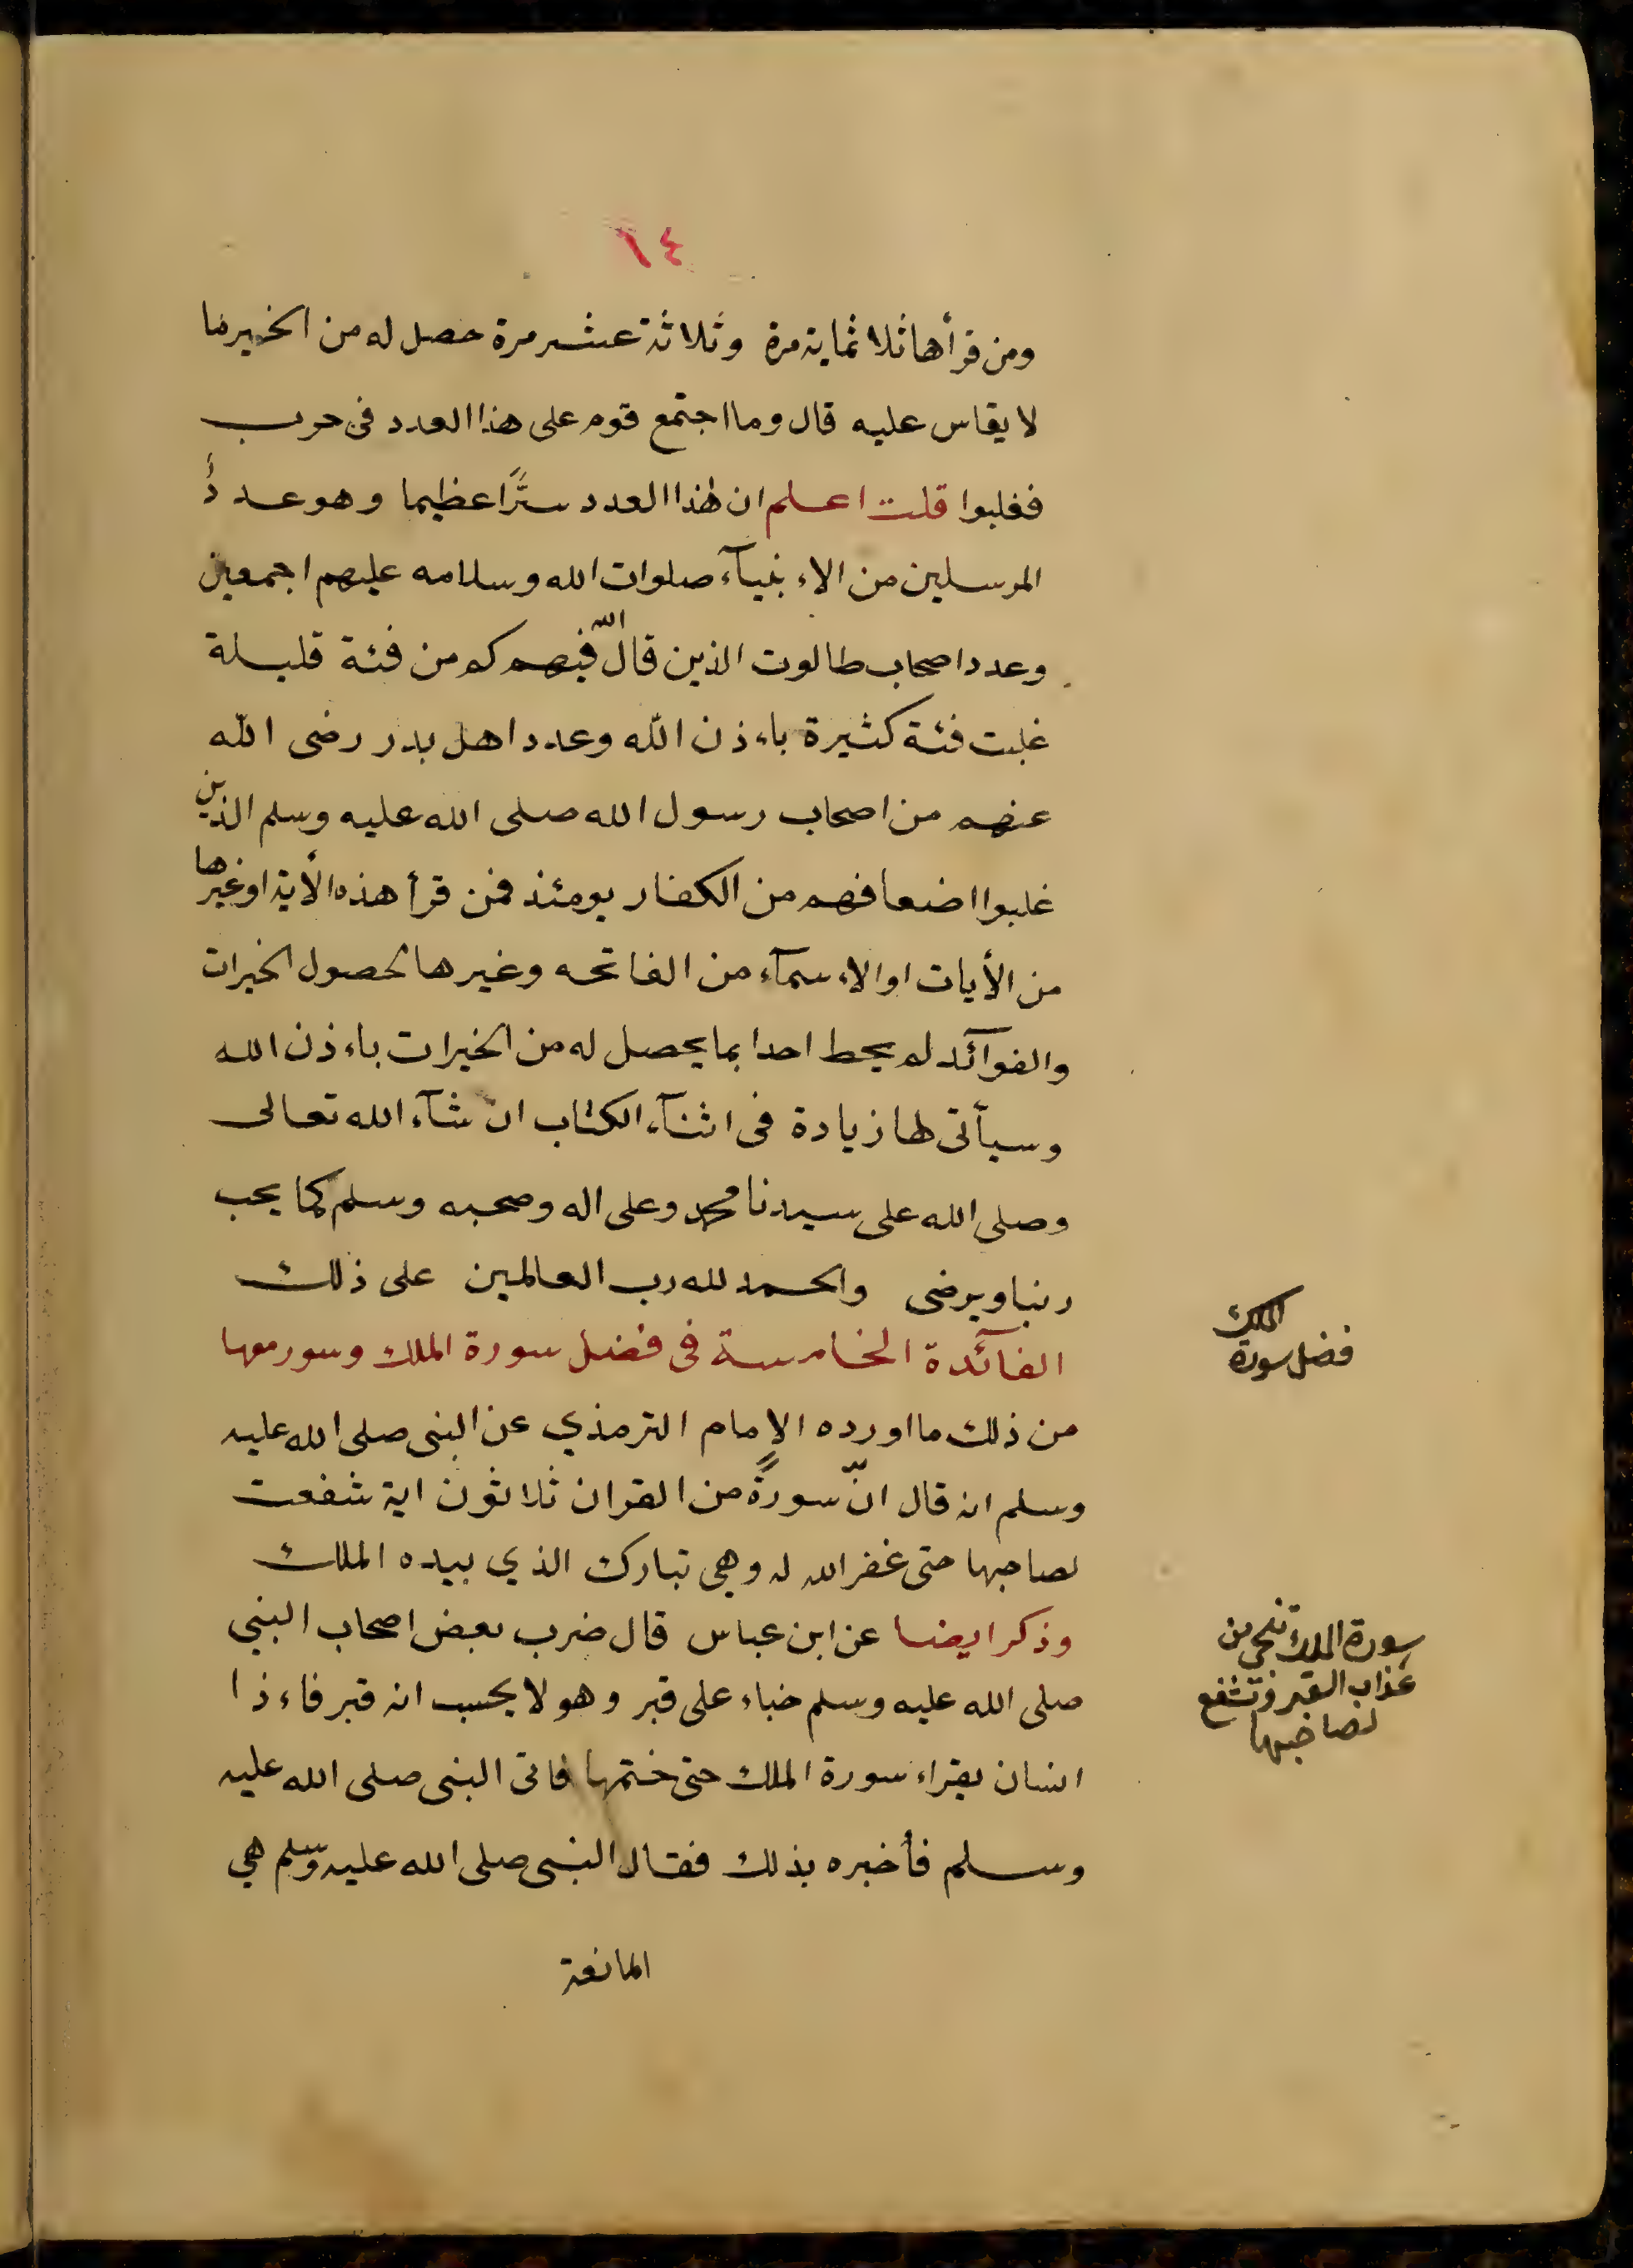 ١٤
ومن قرأها ثلاثماية مرة وثلاثة عشر مرة حصل له من الخير ما
لا يقاس عليه قال وما اجتمع قوم على هذا العدد فى حرب
فغلبوا قلت اعلم ان لهذا العدد سرًّا عظيما وهو عددُ
المرسلين من الاءنبيآء صلوات الله وسلامه عليهم اجمعين
وعدد اصحاب طالوت الذين قال الله فيهم كم من فئة قليلة
غلبت فئة كثيرة باءذن الله وعدد اهل بدر رضى الله
عنهم من اصحاب رسول الله صلى الله عليه وسلم الذين
غلبوا اضعافهم من الكفار يومئذ فمن قرأ هذه الأية او غيرها
من الأيات او الاءسمآء من الفاتحه وغيرها لحصول الخيرات
والفوآئد لم يحط احدا بما يحصل له من الخيرات باءذن الله
وسيأتى لها زيادة فى اثنآء الكتاب ان شآء الله تعالى
وصلى الله على سيدنا محمد وعلى اله وصحبه وسلم كما يحب
ربنا ويرضى والحمد لله رب العالمين على ذلك
الفآئدة الخامسة فى فضل سورة الملك وسور معها
فضل سورة الملك
من ذلك ما اورده الإمام الترمذي عن النبى صلى الله عليه
وسلم انه قال انّ سورةً من القران ثلاثون اية شفعت
لصاحبها حتى غفر الله له وهى تبارك الذي بيده الملك
وذكر ايضا عن ابن عباس قال ضرب بعض اصحاب النبى
سورة الملك تنجى من
عذاب القبر وتشفع
لصاحبها
صلى الله عليه وسلم خباء على قبر وهو لا يحسب انه قبر فاءذا
انسان يقراء سورة الملك حتى ختمها فاتى النبى صلى الله عليه
وسلم فأخبره بذلك فقال النبى صلى الله عليه وسلم هي
المانعة